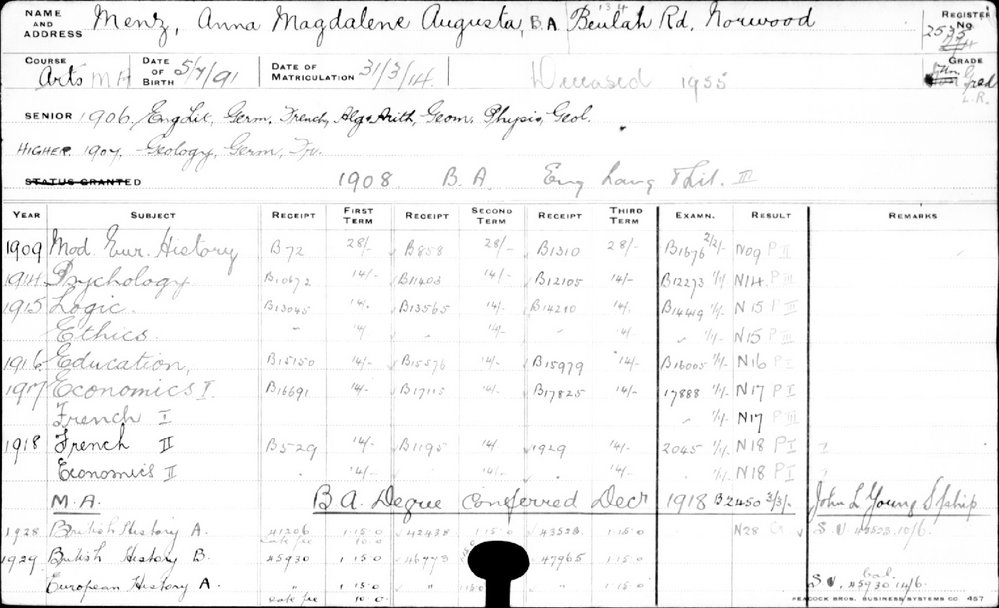 NAME AND ADDRESS Menz, Anna Magdalene Augusta, B.A. Beulah Rd, Norwood REGISTER No. 2535
COURSE Arts M A DATE OF BIRTH 5/7/91 DATE OF MATRICULATION 31/3/14 Deceased 1955 GRADE Grad
L.R.
SENIOR 1906, Eng Lit, Germ, French, Alg & Arith, Geom, Physio, Geol.
HIGHER 1907. Geology, Germ, Fr.
STATUS GRANTED 1908 B.A. Eng Lang & Lit. III
YEAR SUBJECT RECEIPT FIRST TERM RECEIPT SECOND TERM RECEIPT THIRD TERM EXAMN. RESULT REMARKS
1909 Mod. Eur. History B72 28/- B858 28/- B1310 28/- B1676 2/2/- N09 P II
1914 Psychology B10672 14/- B11403 14/- B12105 14/- B12273 1/1/- N14 P III
1915 Logic B13045 14/- B13565 14/- B14210 14/- B14419 1/1/- N15 P II
Ethics " 14/ " 14/- " 14/ " 1/1/- N15 P III
1916 Education, B15150 14/- B15576 14/- B15979 14/- B16005 1/1/- N16 P I
1917 Economics I. B16691 14/- B17115 14/- B17825 14/- 17888 1/1/- N17 P I
French I " 1/1/- N17 P III
1918 French II B529 14/- B1195 14/ 1929 14/- 2045 1/1/- N18 P I
Economics II " 14/- " 14/- " 14/- " 1/1/- N18 P I
M.A. B A. Degree Conferred Decr 1918 B2450 3/3/- John L Young S'ship
1928 British History A. 41206 1.15.0 42438 1.15.0 43523 1.15.0 N28 Cr S.V. 43523 10/6.
late fee
1929 British History B. 45930 1.15.0 46773 47965 1.15.0
European History A. " 1.15.0 " 1.15.0 Cal.
late fee 10.0 S.V. 45930 14/6.
PEACOCK BROS. BUSINESS SYSTEMS CO 457